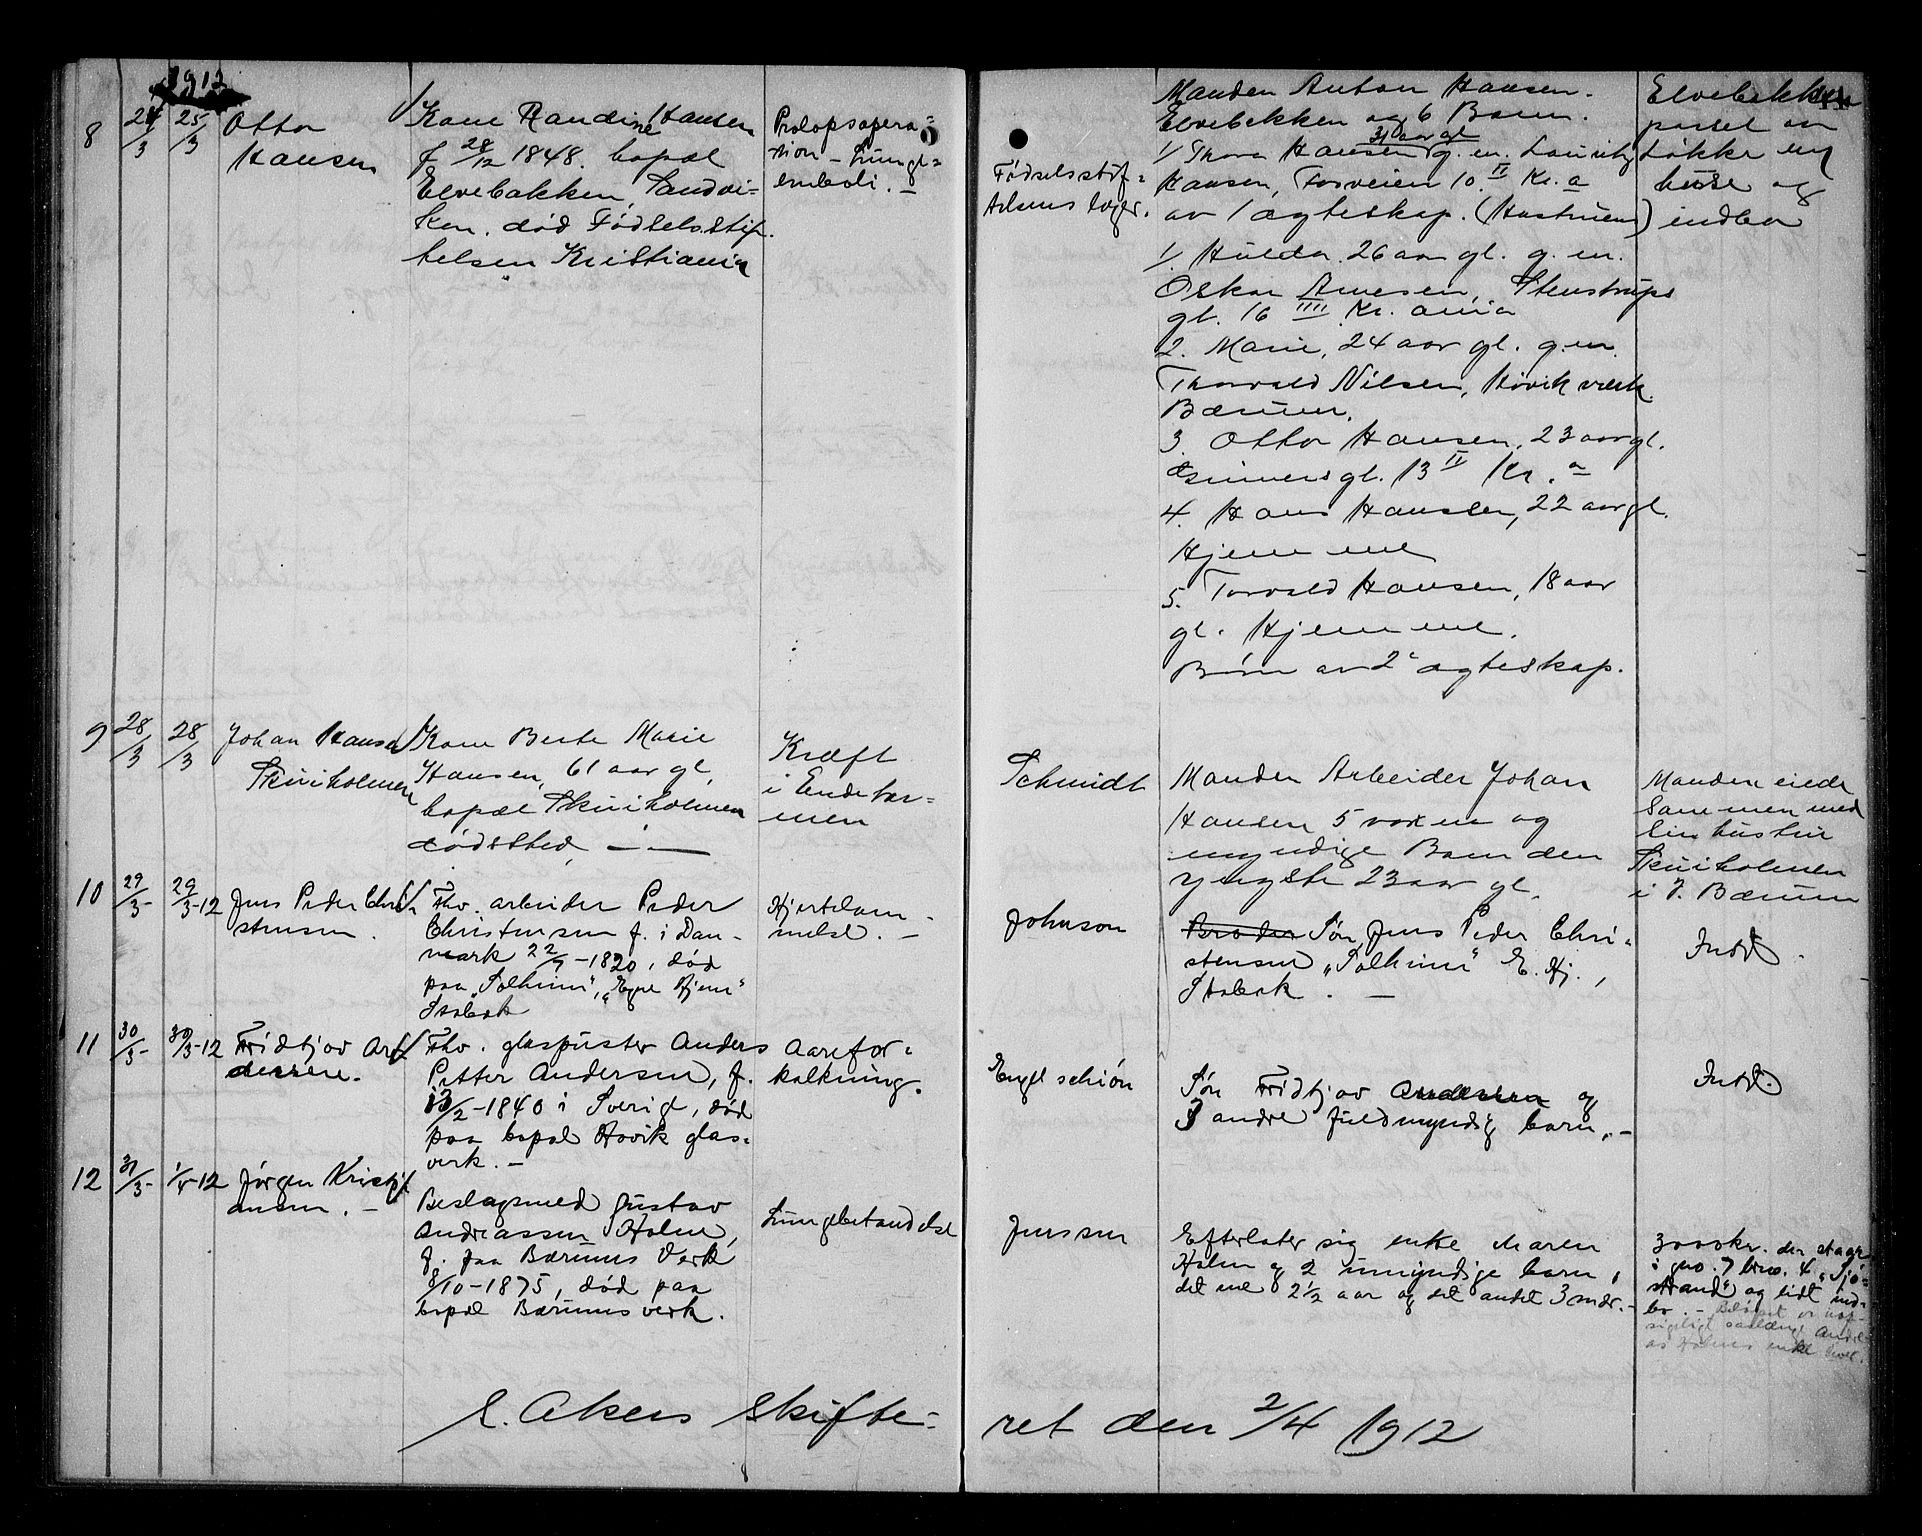 1912
8
24/3
25/3
Otto
Hansen
Kone Randine Hansen
f 28/12 1848. bopæl
Elvebakken, Sandvi-
ken. død Fødselsstif-
telsen Kristiania
Prolapsopera-
tion - Lunge-
emboli. -
Fødselsstif-
telsens læger.
Manden Anton Hansen.
Elvebakken og 6 Barn.
31 aar gl
1/ Thora Hansen g. m. Lauritz
Hansen, Fosveien 10 II Kr. a
av 1 ægteskap. (Hustruens)
1/. Hulda 26 aar gl. g. m.
Oskar Arnesen, Stenstrups
gt. 16 IIII Kr. ania
2. Marie, 24 aar gl. g. m.
Thorvald Nilsen, Høvik værk
Bærum.
3. Otto Hansen, 23 aar gl.
gt. 13 II Kr. a
4. Hans Hansen, 22 aar gl.
Hjemme
5. Torvald Hansen, 18 aar
gl. Hjemme.
Børn av 2' ægteskap.
Elvebakken
parsel av
Løkke m
huse og
indbo
9
28/3
28/3
Johan Hansen
Skuiholmen
Kone Berte Marie
Hansen, 61 aar gl,
bopæl Skuiholmen
dødssted - " -
Kræft
i Endetar-
men
Schmidt
Manden Arbeider Johan
Hansen 5 voxne og
myndige Barn den
yngste 23 aar gl.
Manden eiede
sammen med
sin hustru
Skuiholmen
i V. Bærum
10
29/3-
29/3-12
Jens Peder Chri-
stensen.
Fhv. arbeider Peder
Christensen f. i Dan-
mark 22/7-1820, død
paa "Solheim", "Egne Hjem"
Stabæk
Hjertelam-
melse. -
Johnson
Broder Søn Jens Peder Chri-
stensen "Solheim" E. Hj.,
Stabæk. -
Intet.
11
30/3-
30/3-12
Fridtjov An-
dersen.
Fhv. glaspuster Anders
Petter Andersen, f.
13/2-1840 i Sverige, død
paa bopæl Høvik glas-
verk. -
Aarefor-
kalkning.
Engelschiøn
Søn Fridtjov Andersen og
3 andre fuldmyndig barn. -
Intet.
12
31/3-
1/4-12
Jørgen Kristi-
ansen. -
Beslagsmed Gustav
Andreassen Holm,
f. paa Bærums Verk
8/10-1875, død paa
bopæl Bærums verk.
Lungebetændelse
Jenssen
Efterlater sig enke Maren
Holm og 2 umyndige barn,
det ene 2 1/2 aar og det andet 3 mdr. -
3000 kr. der staar
i gno. 7 brno. 4, "Sjø-
strand" og lidt ind-
bo. - Beløpet er uop-
sigeligt saalænge Andre-
as Holms enke lever.
E. Akers Skifte-
ret den 2/4 1912